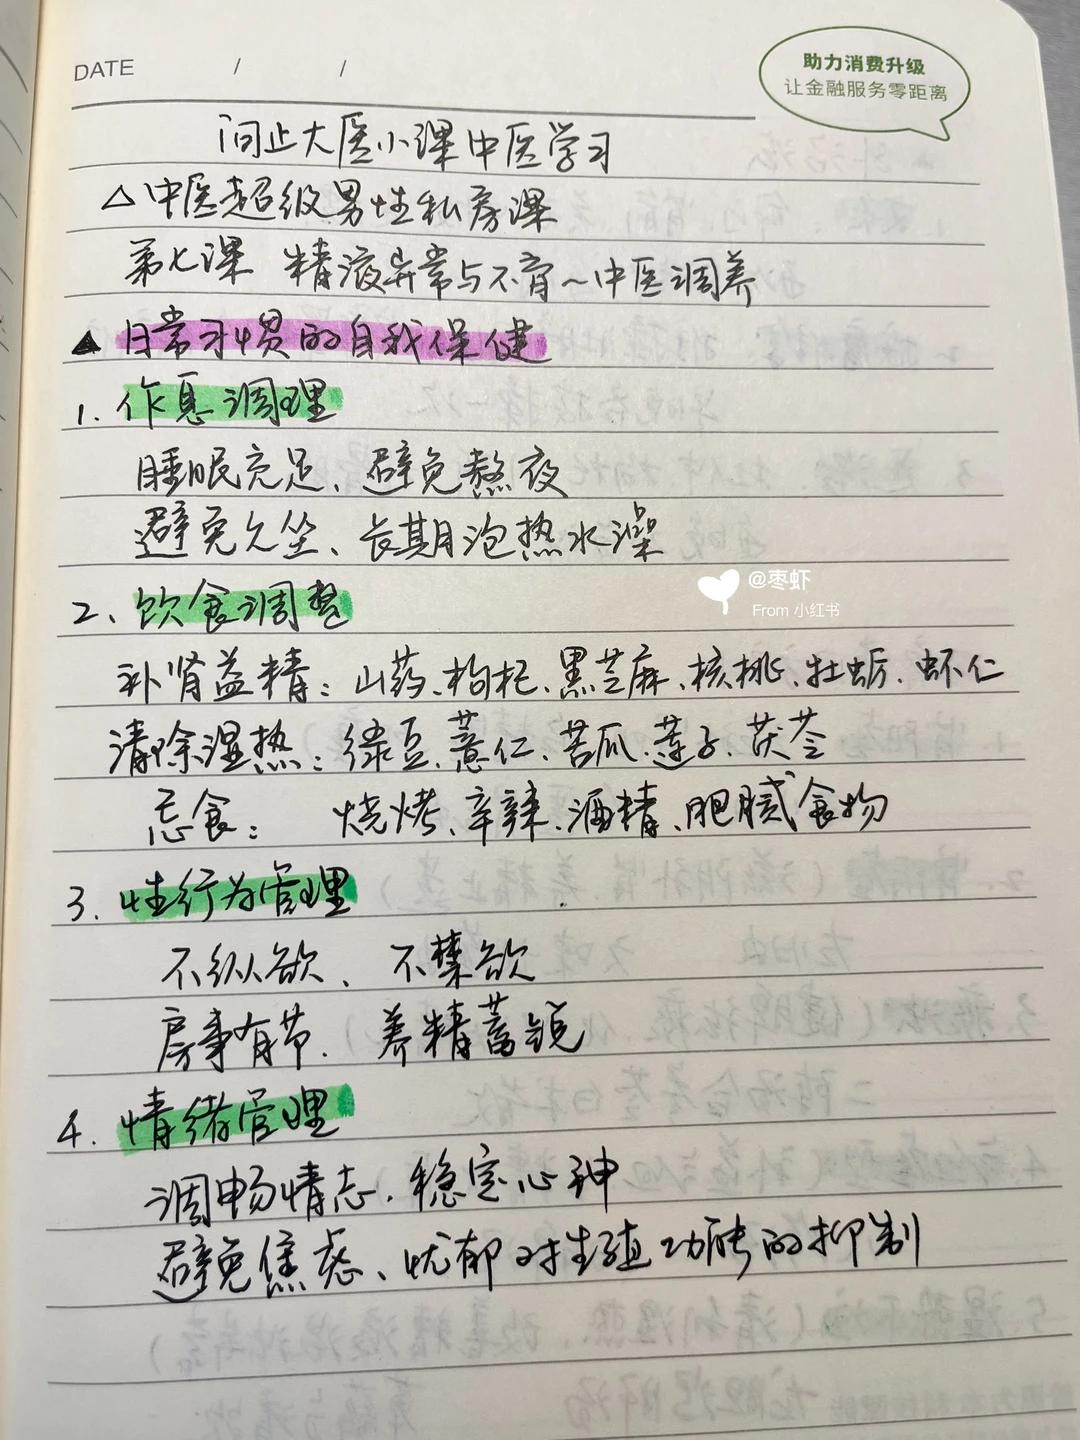 DATE / /
助力消费升级
让金融服务零距离
问止大医小课中医学习
△中医超级男性私房课
第七课 精液异常与不育~中医调养
▲日常习惯的自我保健
1. 作息调理
睡眠充足、避免熬夜
避免久坐、长期泡热水澡
@枣虾
From 小红书
2、饮食调整
补肾益精：山药、枸杞、黑芝麻、核桃、牡蛎、虾仁
清除湿热：绿豆、薏仁、苦瓜、莲子、茯苓
忌食： 烧烤、辛辣、酒精、肥腻食物
3. 性行为管理
不纵欲、 不禁欲
房事有节. 养精蓄锐
4. 情绪管理
调畅情志、稳定心神
避免焦虑、忧郁对生殖功能的抑制